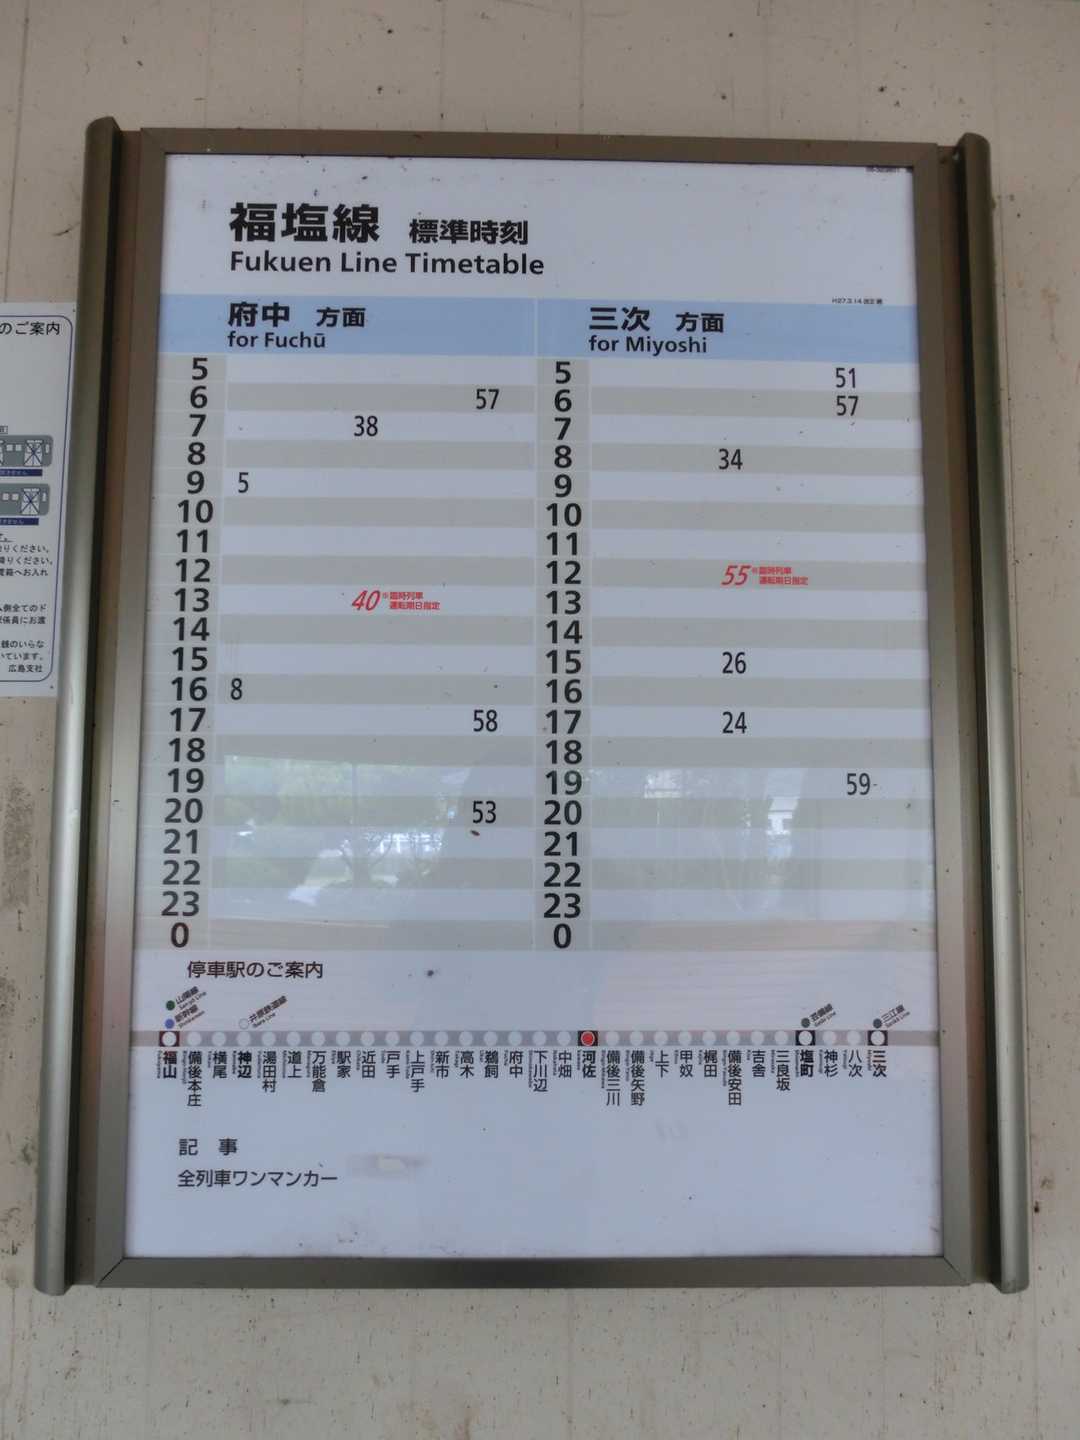 福塩線 標準時刻
Fukuen Line Timetable
H27.3.14 改正
府中 方面
for Fuchū
5
6 57
7 38
8
9 5
10
11
12
13 40 ※臨時列車 運転期日指定
14
15
16 8
17 58
18
19
20 53
21
22
23
0
三次 方面
for Miyoshi
5 51
6 57
7
8 34
9
10
11
12 55 ※臨時列車 運転期日指定
13
14
15 26
16
17 24
18
19 59
20
21
22
23
0
停車駅のご案内
山陽線 Sanyō Line
新幹線 Shinkansen
井原鉄道線 Ibara Line
芸備線 Geibi Line
三江線 Sankō Line
福山
備後本庄
横尾
神辺
湯田村
道上
万能倉
駅家
近田
戸手
上戸手
新市
高木
鵜飼
府中
下川辺
中畑
河佐
備後三川
備後矢野
上下
甲奴
梶田
備後安田
吉舎
三良坂
塩町
神杉
八次
三次
記 事
全列車ワンマンカー
のご案内
りください。
降りください。
賃箱へお入れ
人側全てのド
係員にお渡
銭のいらな
いています。
広島支社